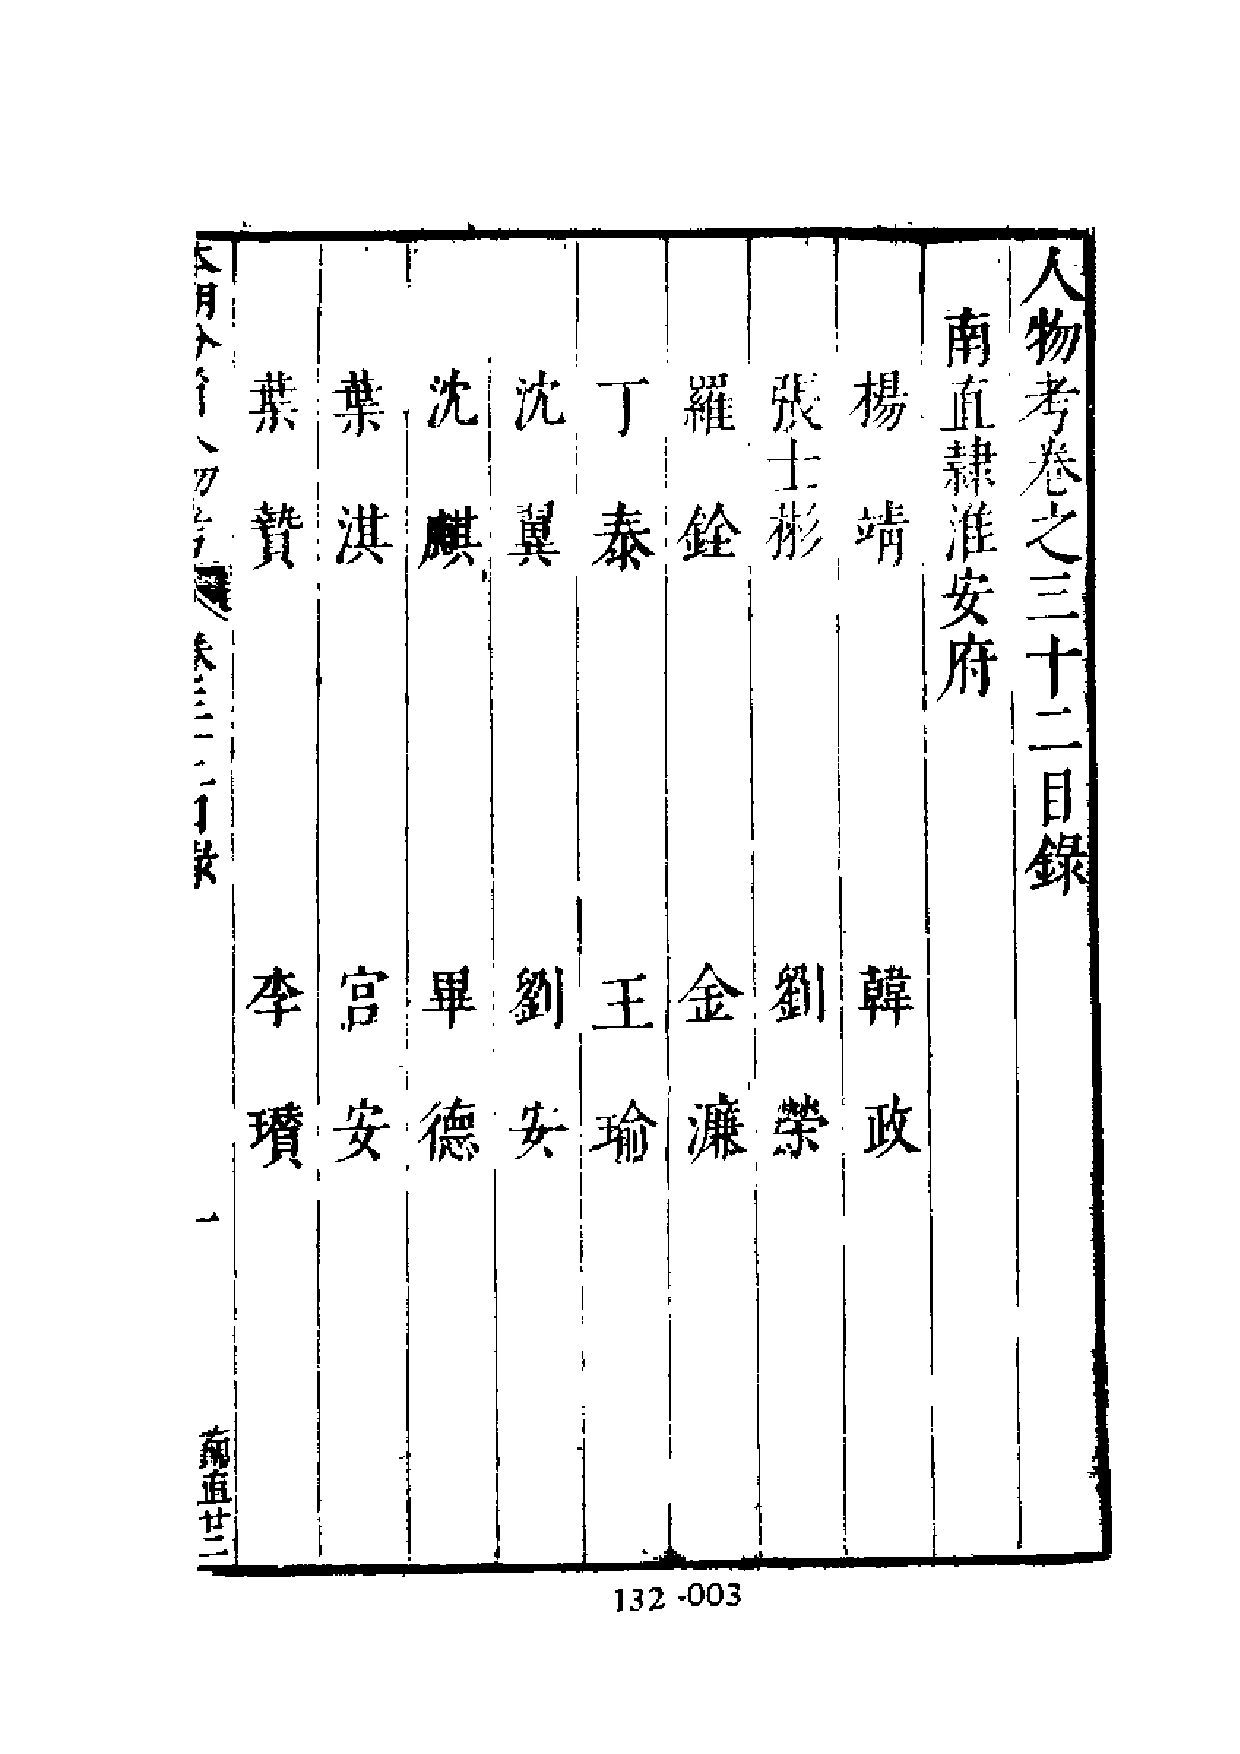 人物考卷之三十二目錄
南直隸淮安府
楊靖 韓政
張士彬 劉榮
羅銓 金濂
丁泰 王瑜
沈翼 劉安
沈麒 畢德
葉淇 宮安
葉贄 李瓚
本朝分省人物考 卷三十二目錄 一 南直廿二
132-003